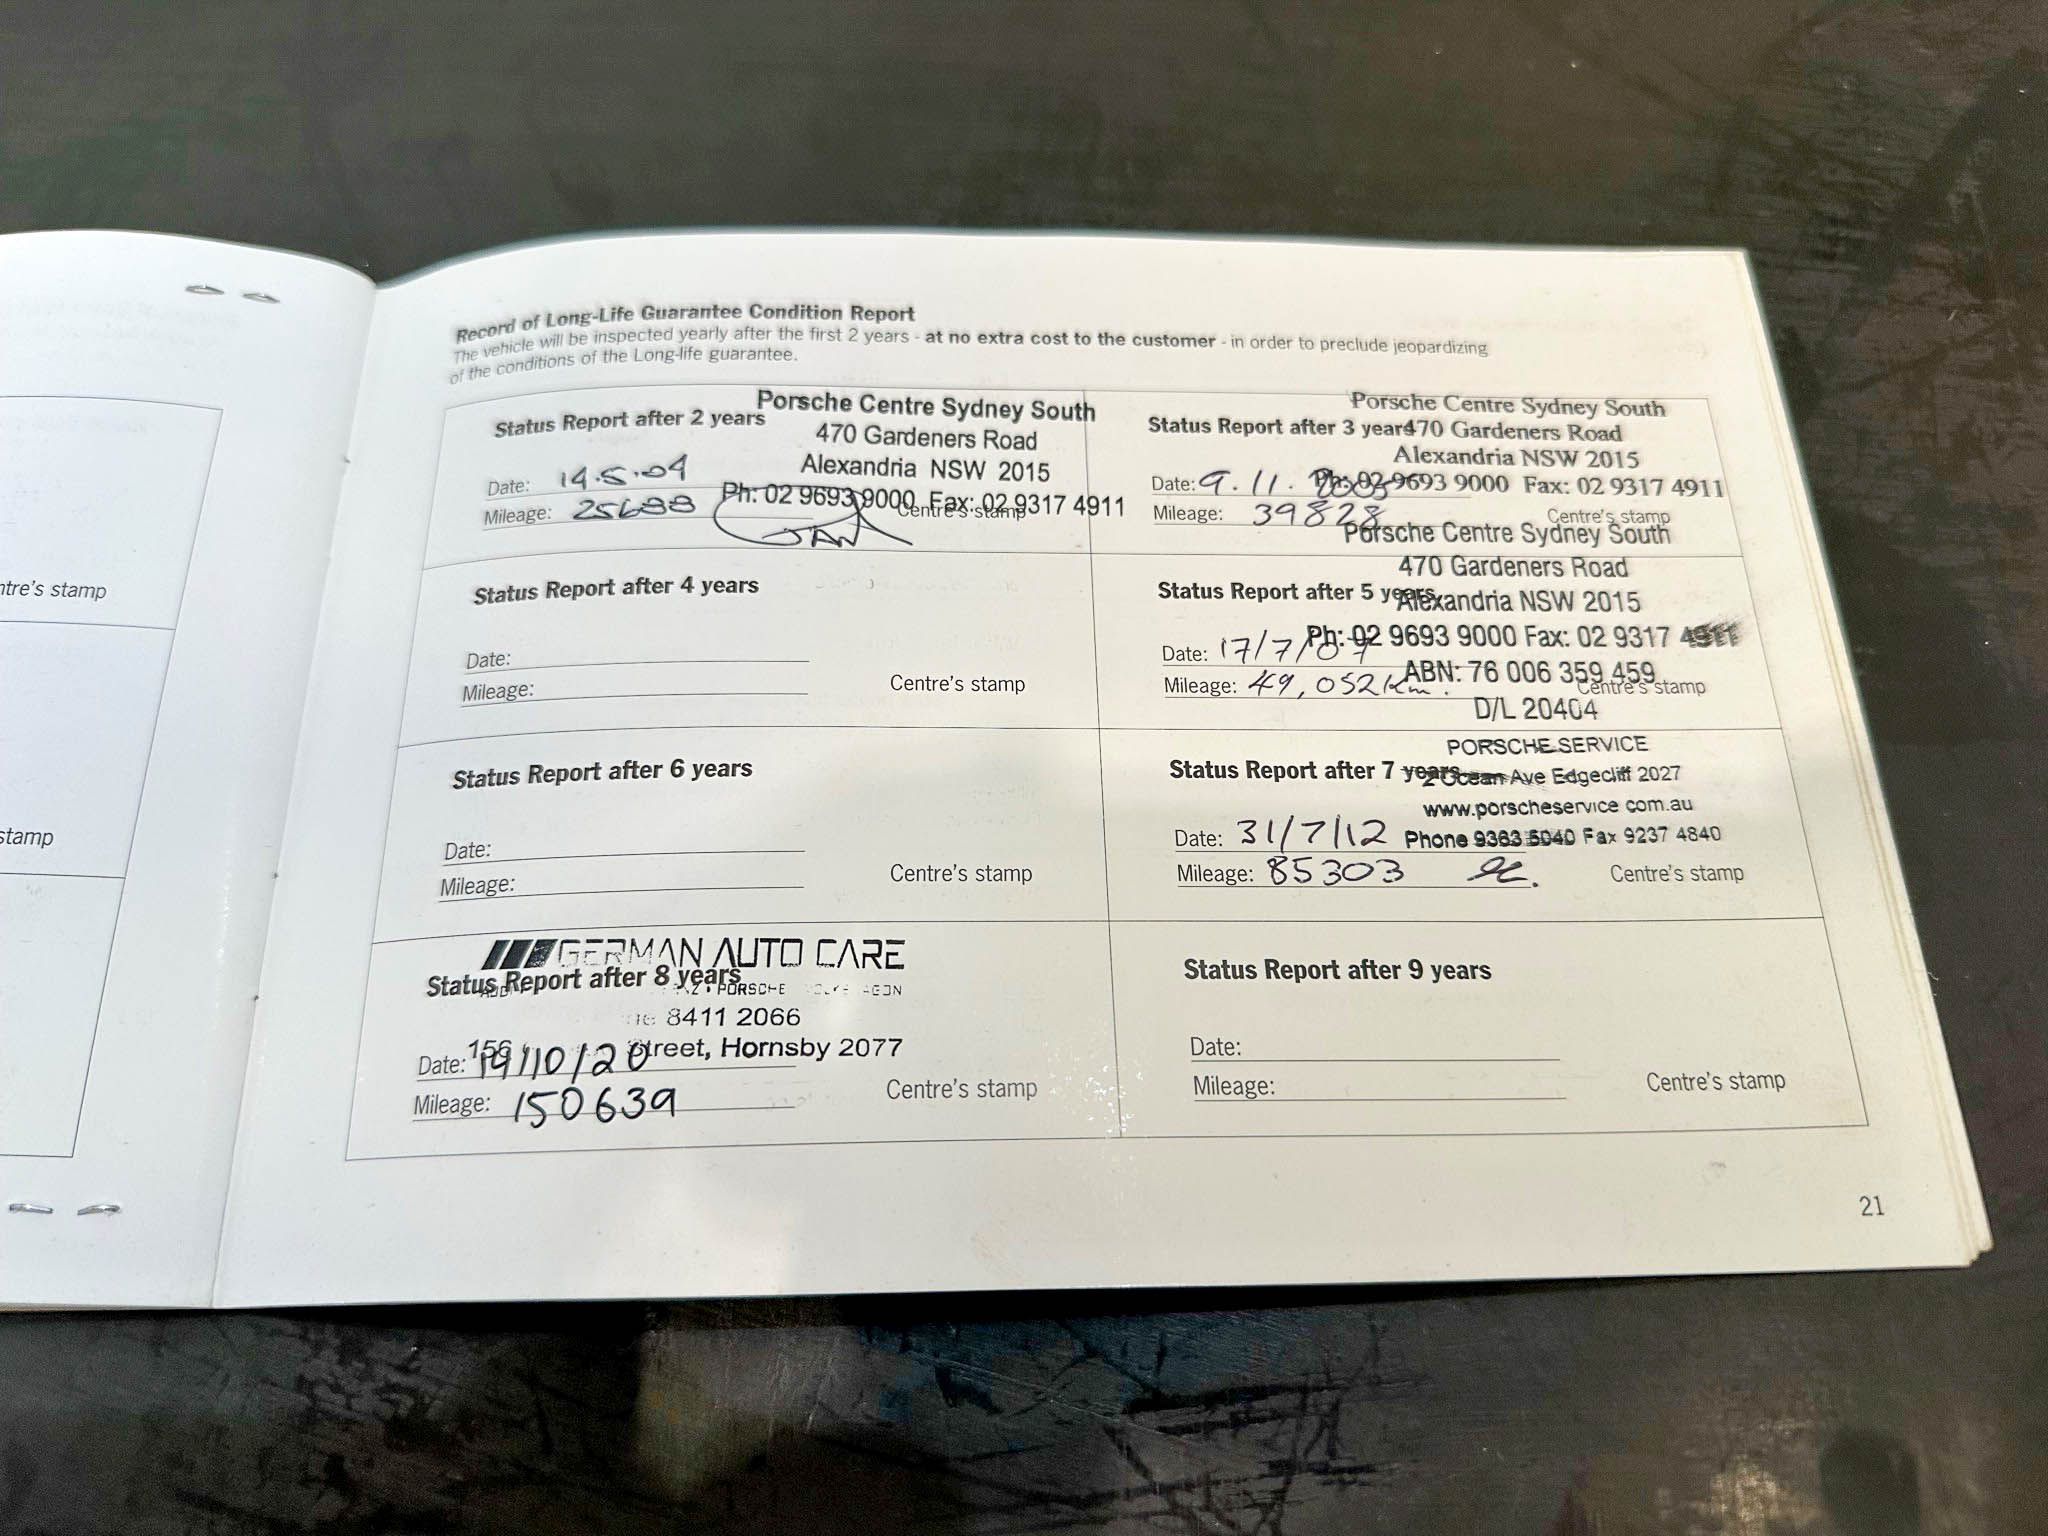 ntre's stamp
stamp
Record of Long-Life Guarantee Condition Report
The vehicle will be inspected yearly after the first 2 years - at no extra cost to the customer - in order to preclude jeopardizing
of the conditions of the Long-life guarantee.
Status Report after 2 years
Porsche Centre Sydney South
470 Gardeners Road
Alexandria NSW 2015
Ph: 02 9693 9000 Fax: 02 9317 4911
Date: 14.5.04
Mileage: 25688
Centre's stamp
JAN
Status Report after 3 years
Porsche Centre Sydney South
470 Gardeners Road
Alexandria NSW 2015
Ph: 02 9693 9000 Fax: 02 9317 4911
Date: 9.11.2005
Mileage: 39828
Centre's stamp
Status Report after 4 years
Date:
Mileage:
Centre's stamp
Status Report after 5 years
Porsche Centre Sydney South
470 Gardeners Road
Alexandria NSW 2015
Ph: 02 9693 9000 Fax: 02 9317 4911
ABN: 76 006 359 459
D/L 20404
Date: 17/7/07
Mileage: 49,052km.
Centre's stamp
Status Report after 6 years
Date:
Mileage:
Centre's stamp
Status Report after 7 years
PORSCHE SERVICE
2 Ocean Ave Edgecliff 2027
www.porscheservice.com.au
Phone 9363 5040 Fax 9237 4840
Date: 31/7/12
Mileage: 85303
Centre's stamp
GERMAN AUTO CARE
Status Report after 8 years
PORSCHE
8411 2066
156 Street, Hornsby 2077
Date: 19/10/20
Mileage: 150639
Centre's stamp
Status Report after 9 years
Date:
Mileage:
Centre's stamp
21